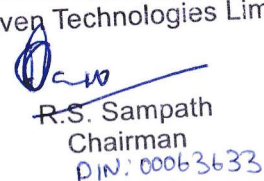 ven Technologies Lim
R.S. Sampath
Chairman
DIN: 00063633